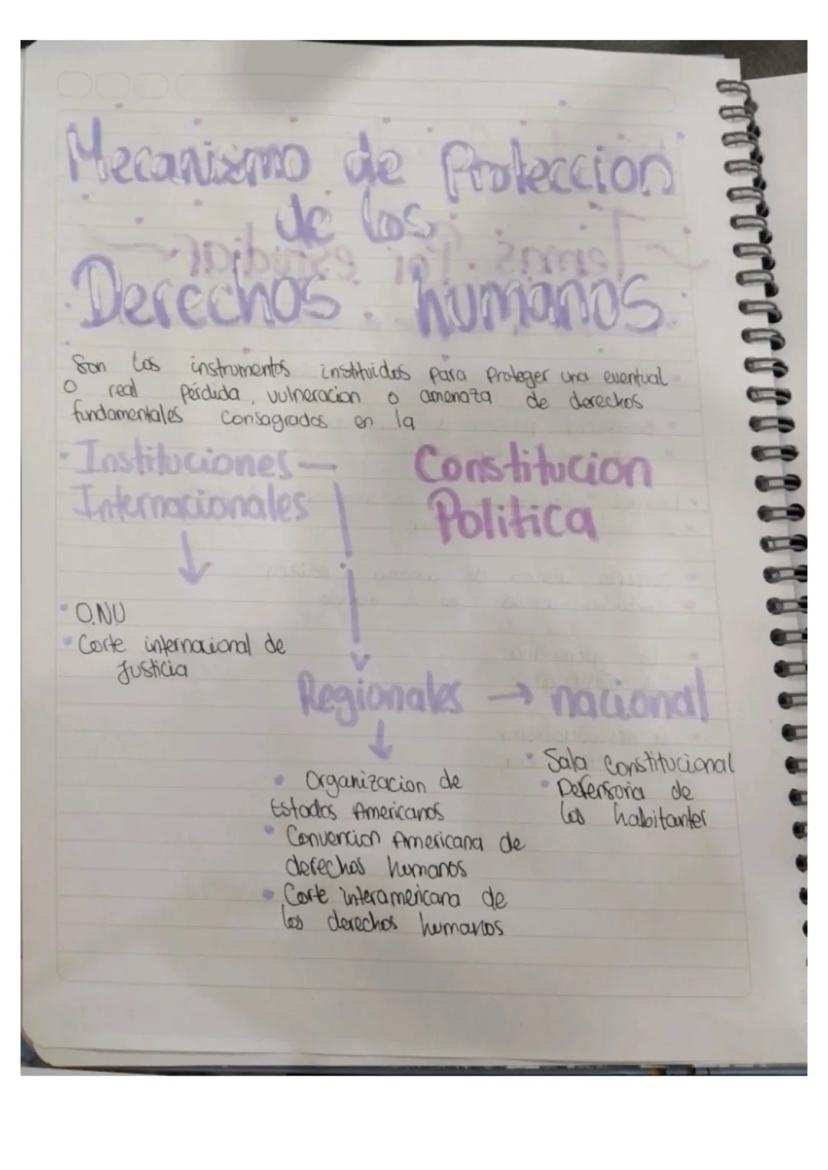 Mecanismo de Proteccion
de los
Derechos humanos
Son los instrumentos instituidos para proteger una eventual
o real pérdida, vulneracion o amenaza de derechos
fundamentales consagrados en la
Constitucion
Politica
Instituciones
Internacionales
• O.NU
• Corte internacional de
Justicia
Regionales → nacional
• Organizacion de
Estados Americanos
• Convencion Americana de
derechos humanos
• Corte interamericana de
los derechos humanos
• Sala constitucional
• Defensoria de
los habitantes